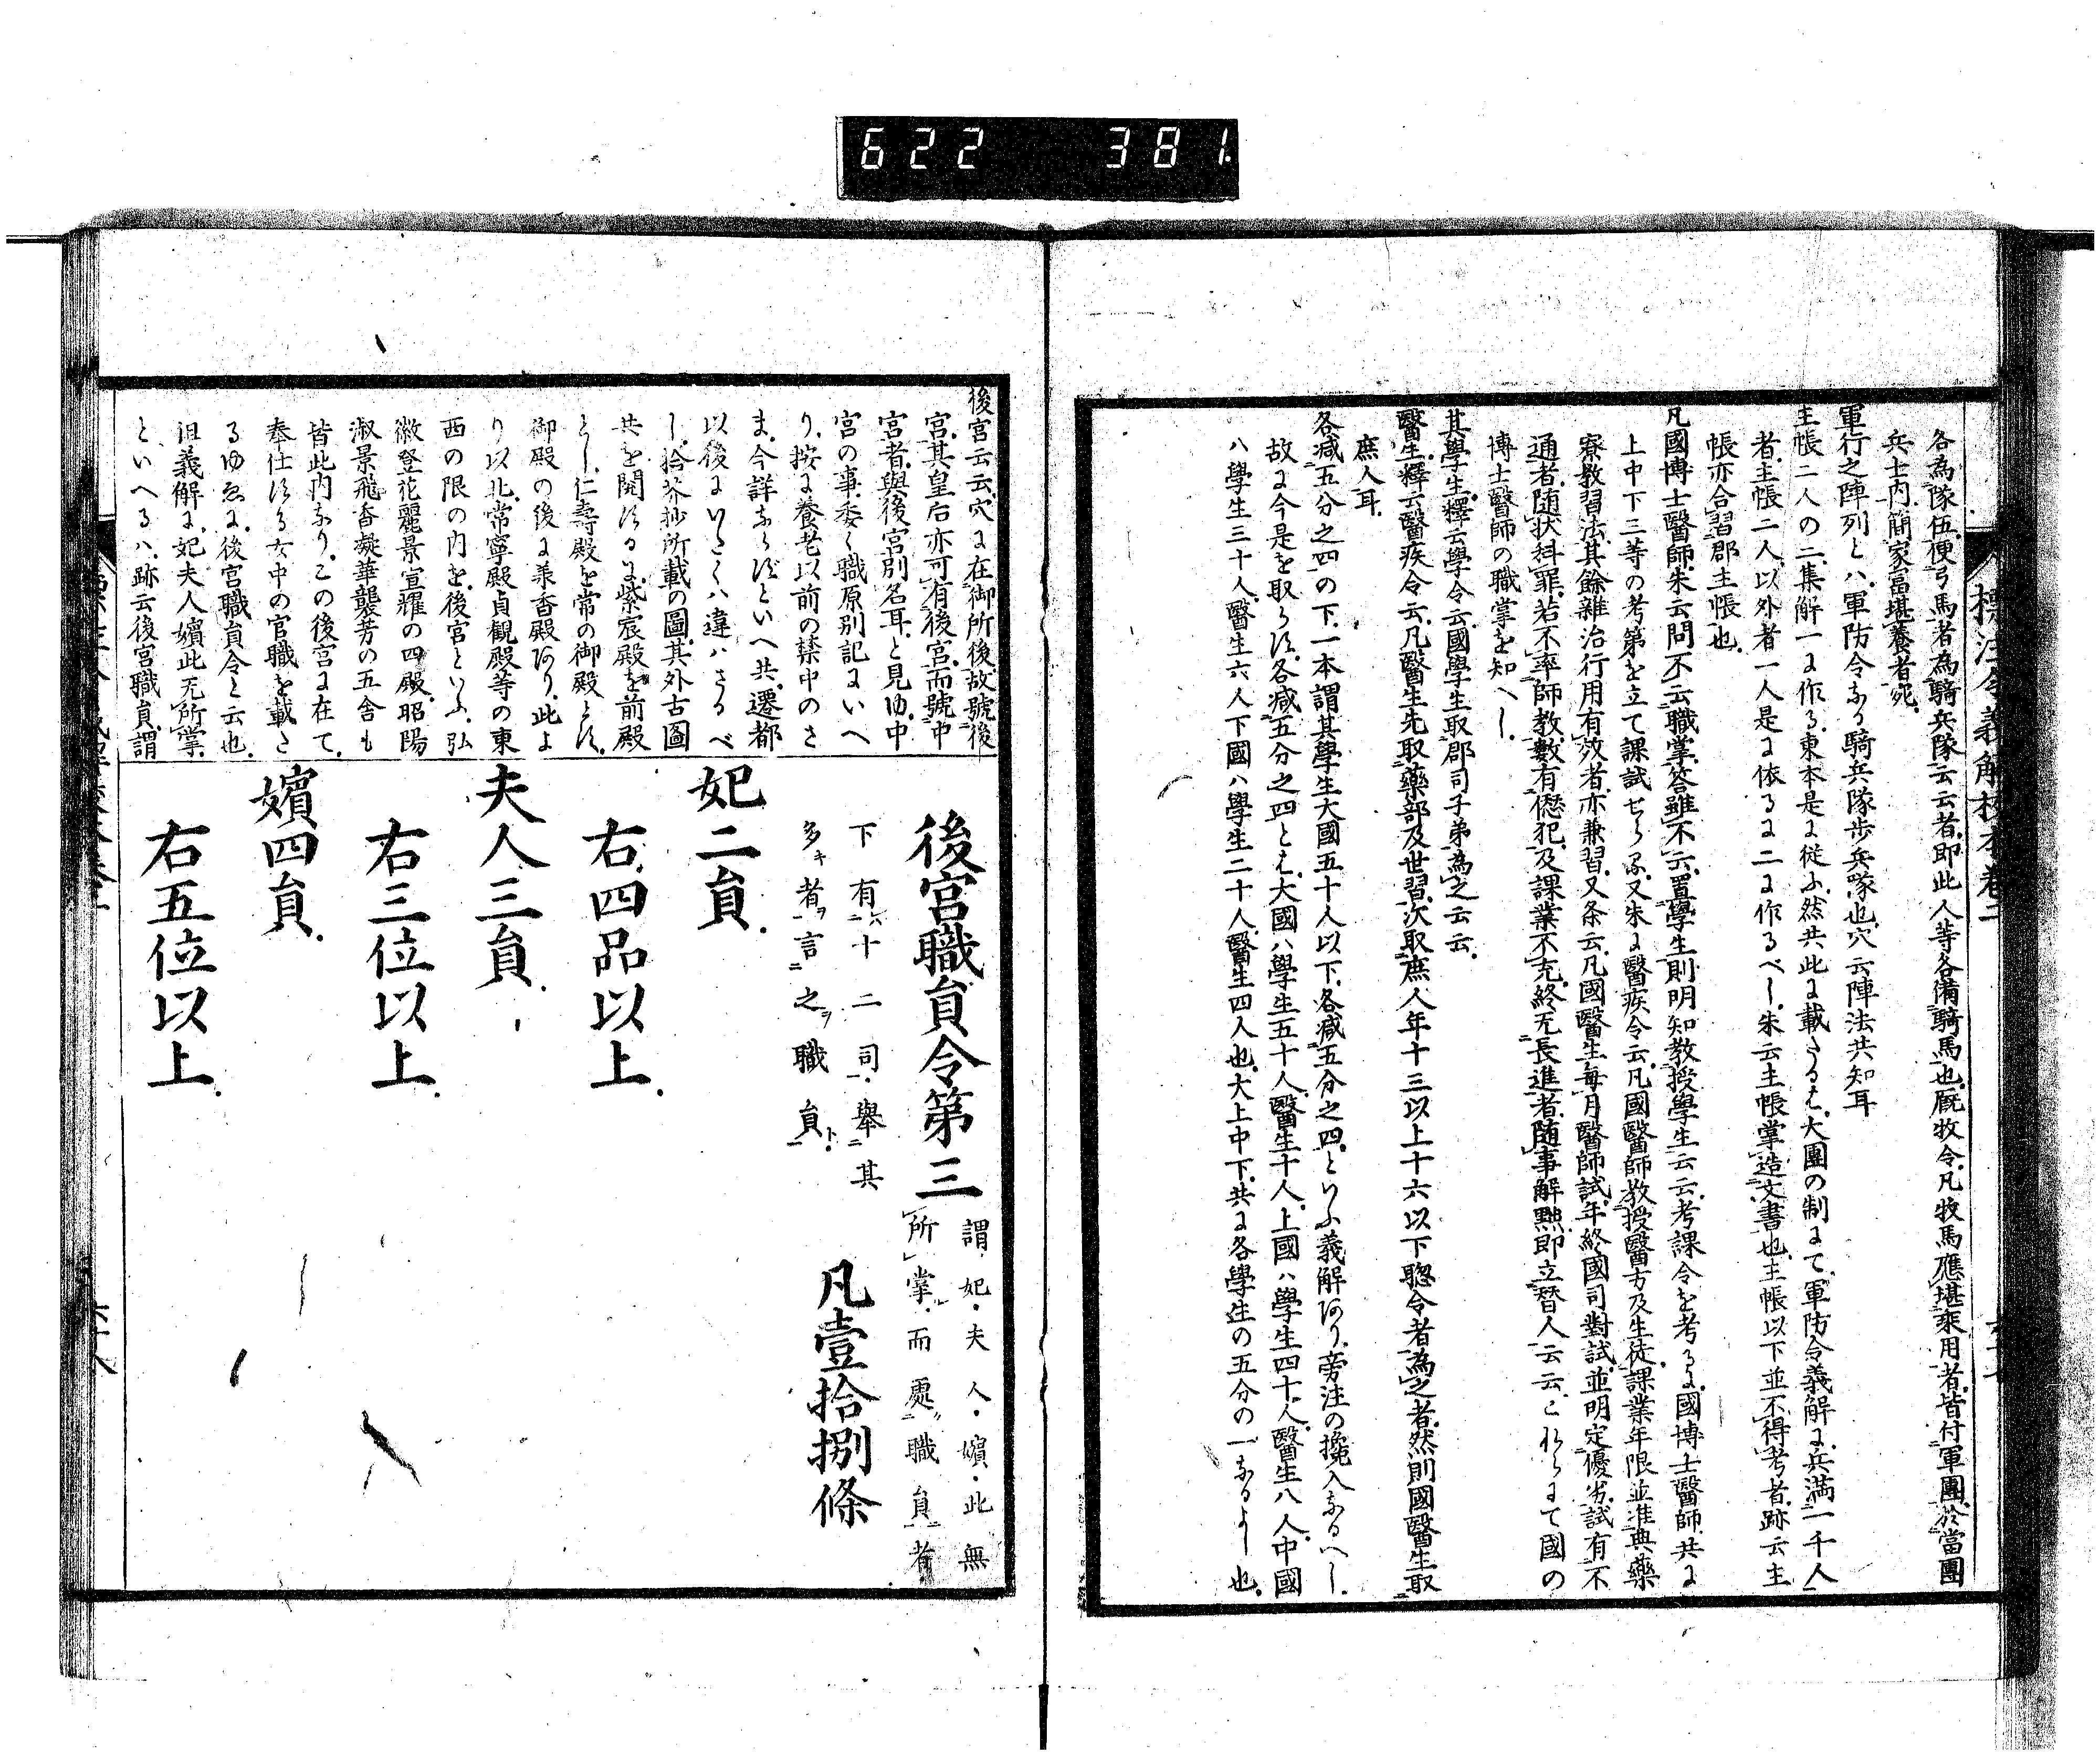 622 381
各為隊伍便弓馬者為騎兵隊云云者即此人等各備騎馬也厩牧令凡牧馬應堪乗用者皆付軍團於當團
兵士内簡家富堪養者宛
軍行之陣列とハ軍防令なる騎兵隊歩兵隊也穴云陣法共知耳
主帳二人の二集解一に作る東本是に従ふ然共此に載さるを大團の制にて軍防令義解に兵満一千人
者主帳二人以外者一人是に依るに二に作るべし朱云主帳掌造文書也主帳以下並不得考者跡云主
帳亦合習郡主帳也
凡國博士醫師朱云問不云職掌答雖不云置學生則明知教授學生云云考課令を考るに國博士醫師共に
上中下三等の考第を立て課試せらる又朱に醫疾令云凡國醫師教授醫方及生徒課業年限並准典藥
寮教習法其餘雜治行用有效者亦兼習又条云凡國醫生毎月醫師試年終國司對試並明定優劣試有不
通者随状科罪若不率師教數有愆犯及課業不充終无長進者随事解黜即立替人云云これらにて國の
博士醫師の職掌を知へし
其學生釋云學令云國學生取郡司子弟為之云云
醫生釋云醫疾令云凡醫生先取藥部及世習次取庶人年十三以上十六以下聡令者為之者然則國醫生取
庶人耳
各減五分之四の下一本謂其學生大國五十人以下各減五分之四といふ義解あり旁注の攙入なるへし
故に今是を取らす各減五分之四とハ大國ハ學生五十人醫生十人上國ハ學生四十人醫生八人中國
ハ學生三十人醫生六人下國ハ學生二十人醫生四人也大上中下共に各學生の五分の一なるよし也
後宮云云穴に在御所後故號後
宮其皇后亦可有後宮而號中
宮者與後宮別名耳と見ゆ中
宮の事委く職原別記にいへ
り按に養老以前の禁中のさ
ま今詳ならすといへ共遷都
以後にいたくハ違ハさるべ
し拾芥抄所載の圖其外古圖
共を閲するに紫宸殿を前殿
とし仁壽殿を常の御殿とす
御殿の後に承香殿あり此よ
り以北常寧殿貞観殿等の東
西の限の内を後宮といふ弘
徽登花麗景宣耀の四殿昭陽
淑景飛香凝華襲芳の五舎も
皆此内なり この後宮に在て
奉仕する女中の官職を載さ
るゆゑに後宮職員令と云也
但義解に妃夫人嬪此无所掌
といへるハ跡云後宮職員謂
後宮職員令第三
謂妃・夫人・嬪・此無
所掌・而處職員者
下有十二司・擧其
多キ者ヲ言之ヲ職員ト
凡壹拾捌條
妃二員
右四品以上
夫人三員
右三位以上
嬪四員
右五位以上